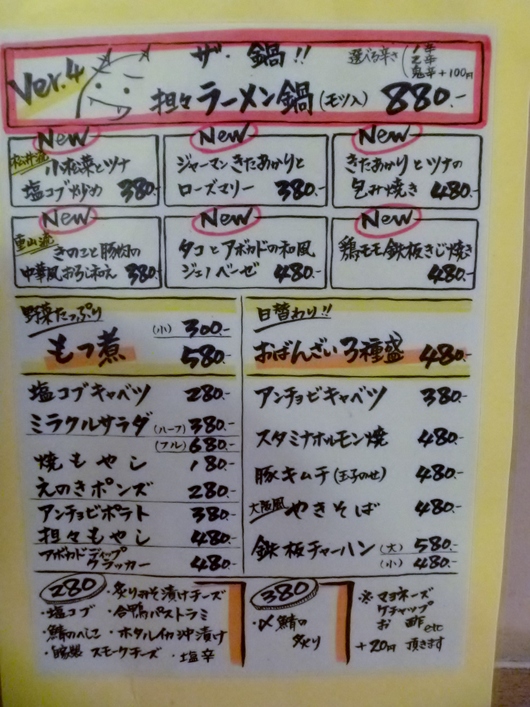 Ver.4
ザ・鍋!!
選べる辛さ
1辛
2辛
鬼辛+100円
担々ラーメン鍋(モツ入) 880.-
New
小松菜とツナ
塩コブ炒め 380.-
New
ジャーマンきたあかりと
ローズマリー 380.-
New
きたあかりとツナの
包み焼き 480.-
New
きのこと豚肉の
中華風おろし和え 380.-
New
タコとアボカドの和風
ジェノベーゼ 480.-
New
鶏モモ鉄板きじ焼き
480.-
野菜たっぷり
もつ煮
(小) 300.-
580.-
塩コブキャベツ 280.-
ミラクルサラダ (ハーフ) 380.-
(フル) 680.-
焼もやし 180.-
えのきポンズ 280.-
アンチョビポテト 380.-
担々もやし 480.-
アボカドディップ
クラッカー 480.-
日替わり!!
おばんざい3種盛 480.-
アンチョビキャベツ 380.-
スタミナホルモン焼 480.-
豚キムチ(玉子のせ) 480.-
大阪風やきそば 480.-
鉄板チャーハン (大) 580.-
(小) 480.-
280
・炙りみそ漬けチーズ
・塩コブ ・合鴨パストラミ
・鯖のへしこ ・ホタルイカ沖漬け
・自家製 スモークチーズ ・塩辛
380
・〆鯖の
炙り
※マヨネーズ
ケチャップ
お酢 etc
+20円 頂きます